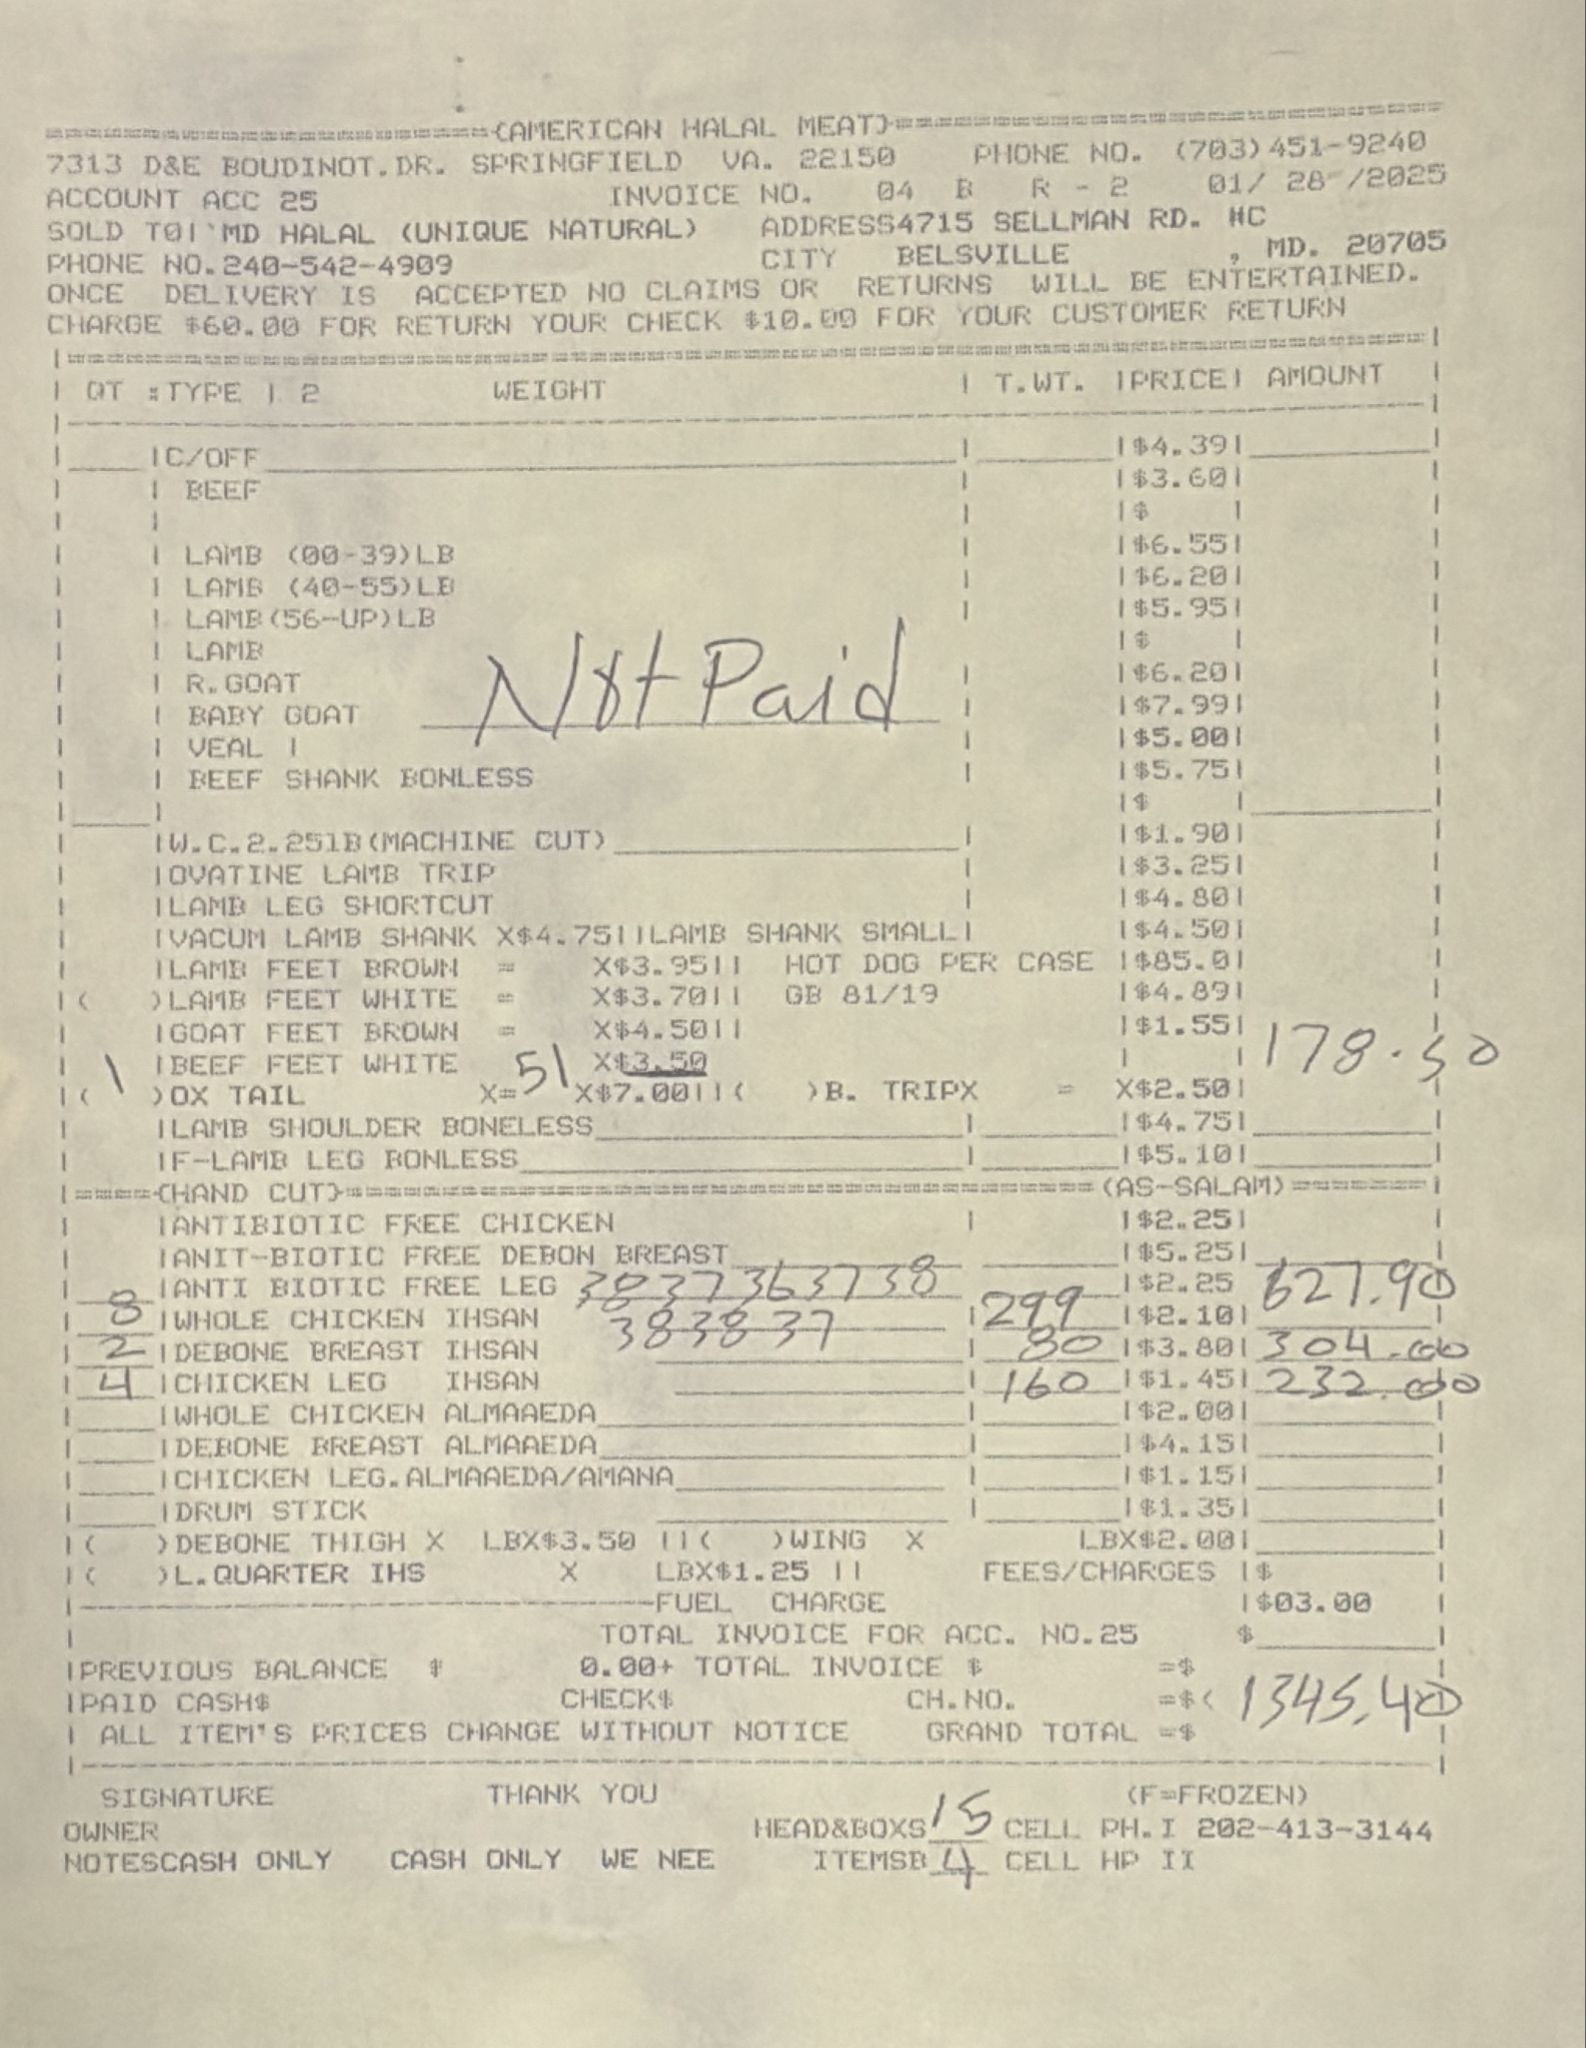 =======================(AMERICAN HALAL MEAT)=============================
7313 D&E BOUDINOT.DR. SPRINGFIELD VA. 22150 PHONE NO. (703)451-9240
ACCOUNT ACC 25 INVOICE NO. 04 B R - 2 01/ 28 /2025
SOLD TO| MD HALAL (UNIQUE NATURAL) ADDRESS4715 SELLMAN RD. #C
PHONE NO.240-542-4909 CITY BELSVILLE , MD. 20705
ONCE DELIVERY IS ACCEPTED NO CLAIMS OR RETURNS WILL BE ENTERTAINED.
CHARGE $60.00 FOR RETURN YOUR CHECK $10.00 FOR YOUR CUSTOMER RETURN
| QT :TYPE | 2 WEIGHT | T.WT. |PRICE| AMOUNT |
|C/OFF |$4.39|
| BEEF |$3.60|
|$ |
| LAMB (00-39)LB |$6.55|
| LAMB (40-55)LB |$6.20|
| LAMB(56-UP)LB |$5.95|
| LAMB |$ |
| R.GOAT |$6.20|
Not Paid
| BABY GOAT |$7.99|
| VEAL | |$5.00|
| BEEF SHANK BONLESS |$5.75|
|$ |
|W.C.2.25lB(MACHINE CUT) |$1.90|
|OVATINE LAMB TRIP |$3.25|
|LAMB LEG SHORTCUT |$4.80|
|VACUM LAMB SHANK X$4.75||LAMB SHANK SMALL| |$4.50|
|LAMB FEET BROWN = X$3.95|| HOT DOG PER CASE |$85.0|
|( )LAMB FEET WHITE = X$3.70|| GB 81/19 |$4.89|
|GOAT FEET BROWN = X$4.50|| |$1.55|
|BEEF FEET WHITE 51 X$3.50 | | 178.50
|( 1 )OX TAIL X= X$7.00||( )B. TRIPX = X$2.50|
|LAMB SHOULDER BONELESS |$4.75|
|F-LAMB LEG BONLESS |$5.10|
|====(HAND CUT)=======================================(AS-SALAM)=======|
|ANTIBIOTIC FREE CHICKEN |$2.25|
|ANIT-BIOTIC FREE DEBON BREAST |$5.25|
|ANTI BIOTIC FREE LEG 38 37 36 37 38 |$2.25
8 |WHOLE CHICKEN IHSAN 38 38 37 | 299 |$2.10| 627.90
2 |DEBONE BREAST IHSAN | 80 |$3.80| 304.00
4 |CHICKEN LEG IHSAN | 160 |$1.45| 232.00
|WHOLE CHICKEN ALMAAEDA |$2.00|
|DEBONE BREAST ALMAAEDA |$4.15|
|CHICKEN LEG.ALMAAEDA/AMANA |$1.15|
|DRUM STICK |$1.35|
|( )DEBONE THIGH X LBX$3.50 ||( )WING X LBX$2.00|
|( )L.QUARTER IHS X LBX$1.25 || FEES/CHARGES |$
|------------------------------FUEL CHARGE |$03.00 |
TOTAL INVOICE FOR ACC. NO.25 $
|PREVIOUS BALANCE $ 0.00+ TOTAL INVOICE $ =$
|PAID CASH$ CHECK$ CH.NO. =$( 1345.40
| ALL ITEM'S PRICES CHANGE WITHOUT NOTICE GRAND TOTAL =$
SIGNATURE THANK YOU (F=FROZEN)
OWNER HEAD&BOXS 15 CELL PH.I 202-413-3144
NOTESCASH ONLY CASH ONLY WE NEE ITEMSB 4 CELL HP II